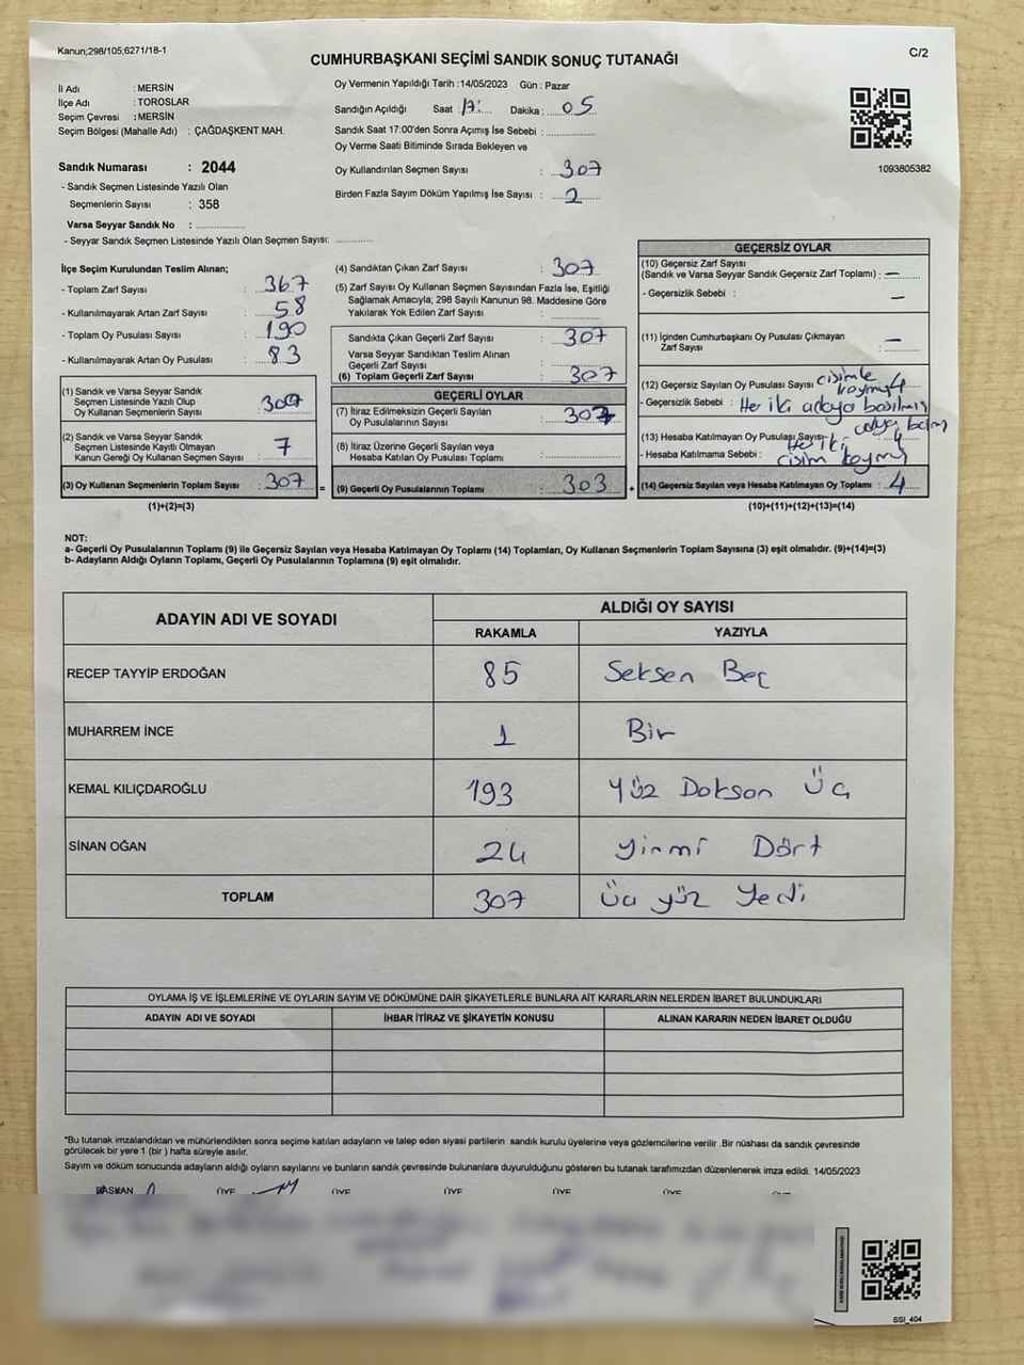 Kanun;298/105;6271/18-1
CUMHURBAŞKANI SEÇİMİ SANDIK SONUÇ TUTANAĞI
C/2
İl Adı : MERSİN
İlçe Adı : TOROSLAR
Seçim Çevresi : MERSİN
Seçim Bölgesi (Mahalle Adı) : ÇAĞDAŞKENT MAH.
Sandık Numarası : 2044
- Sandık Seçmen Listesinde Yazılı Olan
Seçmenlerin Sayısı : 358
Varsa Seyyar Sandık No :
- Seyyar Sandık Seçmen Listesinde Yazılı Olan Seçmen Sayısı:
Oy Vermenin Yapıldığı Tarih :14/05/2023 Gün : Pazar
Sandığın Açıldığı Saat : 17: Dakika : 05
Sandık Saat 17:00'den Sonra Açımış İse Sebebi :
Oy Verme Saati Bitiminde Sırada Bekleyen ve
Oy Kullandırılan Seçmen Sayısı : 307
Birden Fazla Sayım Döküm Yapılmış İse Sayısı : 2
1093805382
İlçe Seçim Kurulundan Teslim Alınan;
- Toplam Zarf Sayısı : 367
- Kullanılmayarak Artan Zarf Sayısı : 58
- Toplam Oy Pusulası Sayısı : 190
- Kullanılmayarak Artan Oy Pusulası : 83
(1) Sandık ve Varsa Seyyar Sandık
Seçmen Listesinde Yazılı Olup
Oy Kullanan Seçmenlerin Sayısı :
(2) Sandık ve Varsa Seyyar Sandık
Seçmen Listesinde Kayıtlı Olmayan
Kanun Gereği Oy Kullanan Seçmen Sayısı : 7
(3) Oy Kullanan Seçmenlerin Toplam Sayısı : 307 =
(1)+(2)=(3)
(4) Sandıktan Çıkan Zarf Sayısı : 307
(5) Zarf Sayısı Oy Kullanan Seçmen Sayısından Fazla İse, Eşitliği
Sağlamak Amacıyla, 298 Sayılı Kanunun 98. Maddesine Göre
Yakılarak Yok Edilen Zarf Sayısı :
Sandıkta Çıkan Geçerli Zarf Sayısı : 307
Varsa Seyyar Sandıktan Teslim Alınan
Geçerli Zarf Sayısı :
(6) Toplam Geçerli Zarf Sayısı : 307
GEÇERLİ OYLAR
(7) İtiraz Edilmeksizin Geçerli Sayılan
Oy Pusulalarının Sayısı :
(8) İtiraz Üzerine Geçerli Sayılan veya
Hesaba Katılan Oy Pusulası Toplamı :
(9) Geçerli Oy Pusulalarının Toplamı : 303 +
GEÇERSİZ OYLAR
(10) Geçersiz Zarf Sayısı
(Sandık ve Varsa Seyyar Sandık Geçersiz Zarf Toplamı) : —
- Geçersizlik Sebebi : —
(11) İçinden Cumhurbaşkanı Oy Pusulası Çıkmayan
Zarf Sayısı : —
(12) Geçersiz Sayılan Oy Pusulası Sayısı 4
- Geçersizlik Sebebi : Her iki adaya basılmış
(13) Hesaba Katılmayan Oy Pusulası Sayısı : 4
- Hesaba Katılmama Sebebi : Her iki
(14) Geçersiz Sayılan veya Hesaba Katılmayan Oy Toplamı : 4
(10)+(11)+(12)+(13)=(14)
NOT:
a- Geçerli Oy Pusulalarının Toplamı (9) ile Geçersiz Sayılan veya Hesaba Katılmayan Oy Toplamı (14) Toplamları, Oy Kullanan Seçmenlerin Toplam Sayısına (3) eşit olmalıdır. (9)+(14)=(3)
b- Adayların Aldığı Oyların Toplamı, Geçerli Oy Pusulalarının Toplamına (9) eşit olmalıdır.
ADAYIN ADI VE SOYADI
ALDIĞI OY SAYISI
RAKAMLA YAZIYLA
RECEP TAYYİP ERDOĞAN 85 Seksen Beç
MUHARREM İNCE 1 Bir
KEMAL KILIÇDAROĞLU 193 Yüz Doksan Üç
SİNAN OĞAN 24 Yirmi Dört
TOPLAM 307 Üç yüz Yedi
OYLAMA İŞ VE İŞLEMLERİNE VE OYLARIN SAYIM VE DÖKÜMÜNE DAİR ŞİKAYETLERLE BUNLARA AİT KARARLARIN NELERDEN İBARET BULUNDUKLARI
ADAYIN ADI VE SOYADI İHBAR İTİRAZ VE ŞİKAYETİN KONUSU ALINAN KARARIN NEDEN İBARET OLDUĞU
*Bu tutanak imzalandıktan ve mühürlendikten sonra seçime katılan adayların ve talep eden siyasi partilerin sandık kurulu üyelerine veya gözlemcilerine verilir. Bir nüshası da sandık çevresinde
görülecek bir yere 1 (bir ) hafta süreyle asılır.
Sayım ve döküm sonucunda adayların aldığı oyların sayılarını ve bunların sandık çevresinde bulunanlara duyurulduğunu gösteren bu tutanak tarafımızdan düzenlenerek imza edildi. 14/05/2023
BAŞKAN ÜYE ÜYE ÜYE ÜYE ÜYE
SSI_404